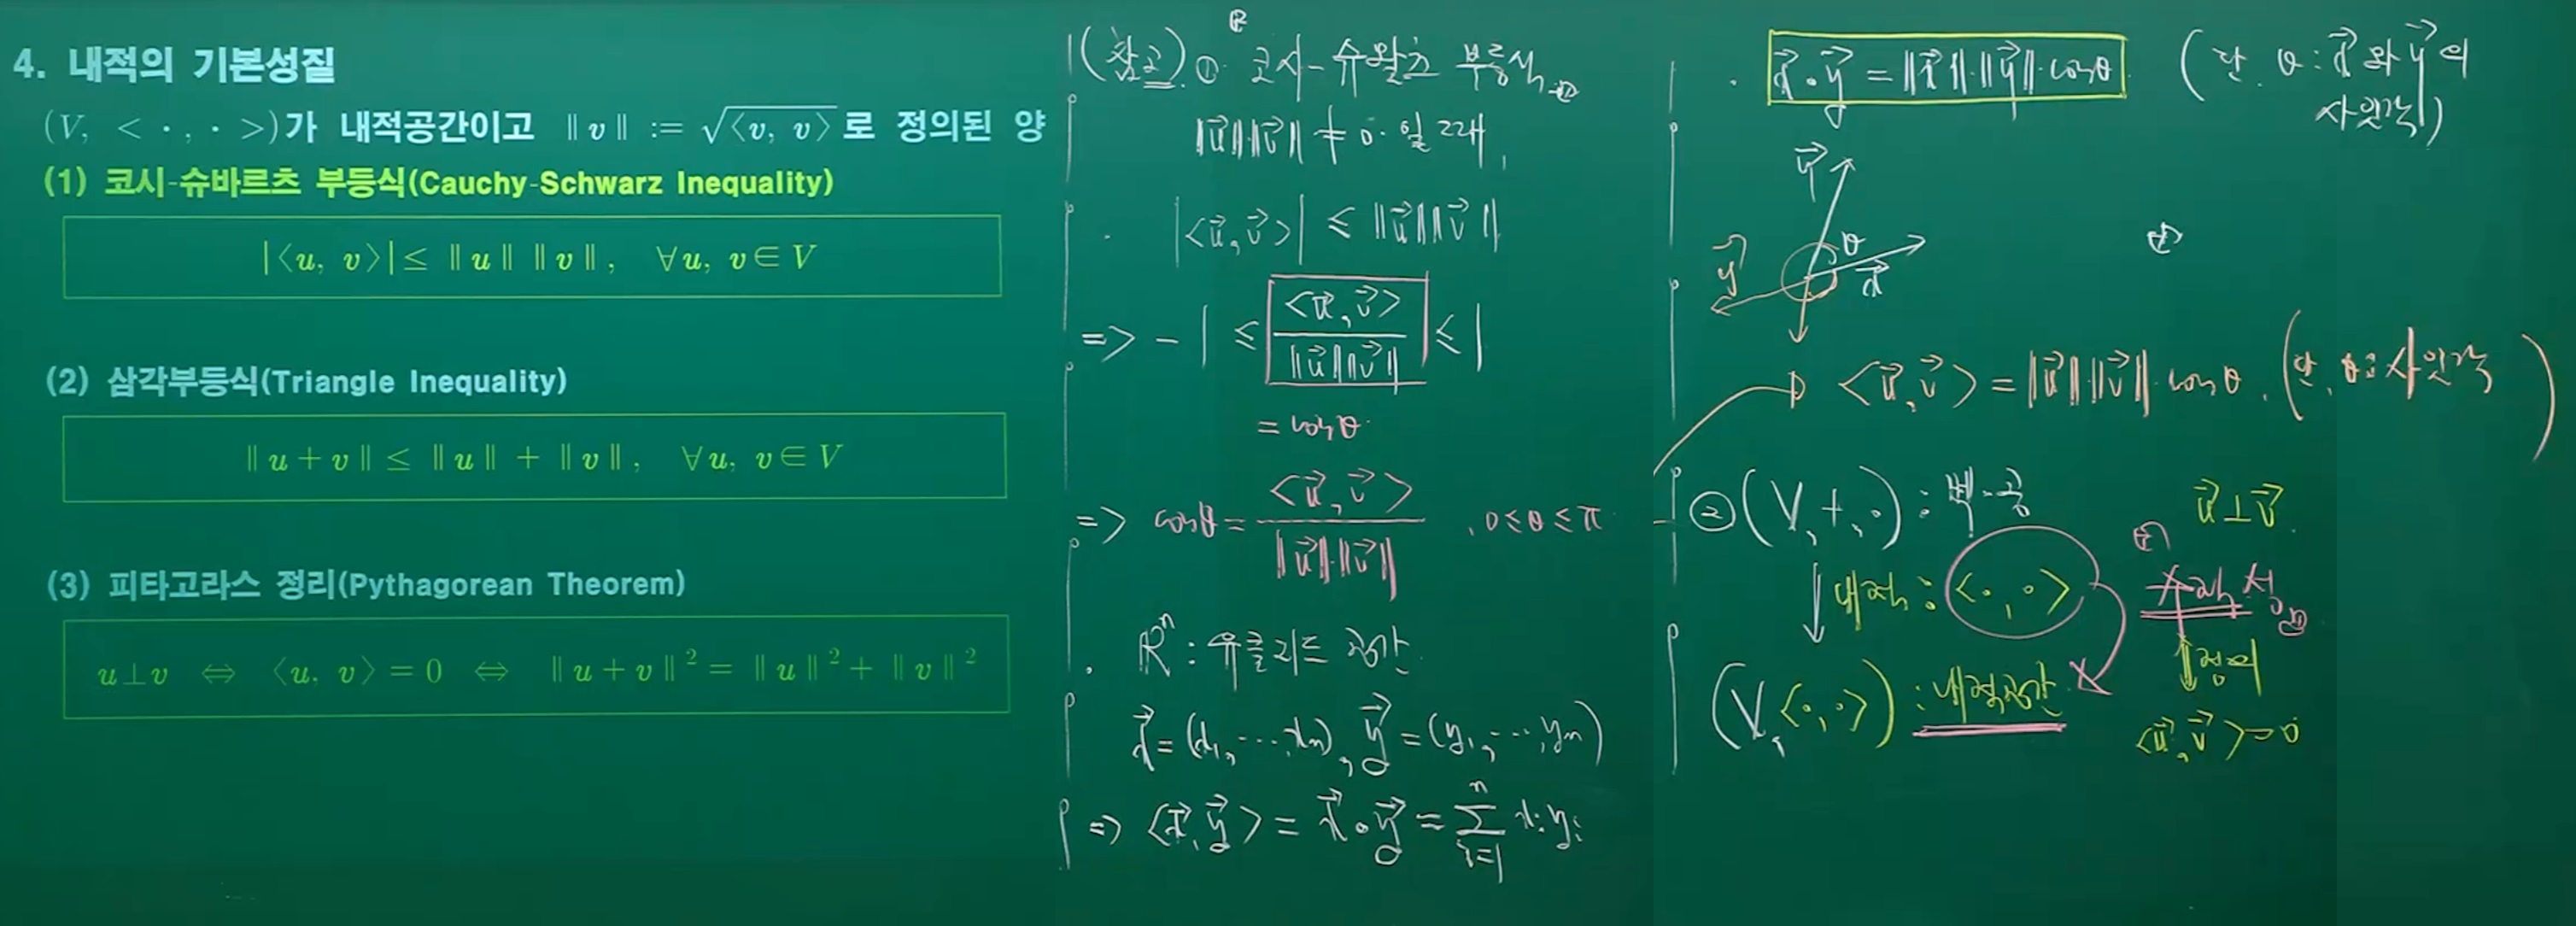 4. 내적의 기본성질
(V, < ·, · >)가 내적공간이고 ‖v‖ := √⟨v, v⟩로 정의된 양
(1) 코시-슈바르츠 부등식(Cauchy-Schwarz Inequality)
|⟨u, v⟩| ≤ ‖u‖ ‖v‖, ∀u, v∈V
(2) 삼각부등식(Triangle Inequality)
‖u+v‖ ≤ ‖u‖ + ‖v‖, ∀u, v∈V
(3) 피타고라스 정리(Pythagorean Theorem)
u⊥v ⇔ ⟨u, v⟩=0 ⇔ ‖u+v‖²=‖u‖²+‖v‖²
(참고) ① 코시-슈왈츠 부등식
‖u⃗‖‖v⃗‖ ≠ 0 일 때,
· |<u⃗, v⃗>| ≤ ‖u⃗‖‖v⃗‖
=> -1 ≤ <u⃗, v⃗> / ‖u⃗‖‖v⃗‖ ≤ 1
= cosθ
=> cosθ = <u⃗, v⃗> / ‖u⃗‖·‖v⃗‖, 0≤θ≤π
· ℝⁿ : 유클리드 공간
x⃗=(x₁, ⋯, xₙ), y⃗=(y₁, ⋯, yₙ)
=> <x⃗, y⃗> = x⃗∘y⃗ = Σᵢ₌₁ⁿ xᵢyᵢ
· x⃗∘y⃗ = ‖x⃗‖·‖y⃗‖·cosθ (단, θ : x⃗와 y⃗의
사잇각)
y⃗
θ
x⃗
y⃗
<u⃗, v⃗> = ‖u⃗‖·‖v⃗‖·cosθ. (단, θ: 사잇각)
② (V, +, ·) : 벡·공
u⃗⊥v⃗
내적 : <·, ·>
수직성
정의
(V, <·, ·>) : 내적공간
<u⃗, v⃗>=0